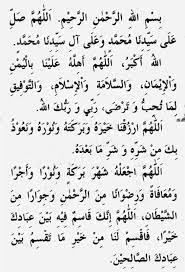 بِسْمِ اللهِ الرَّحْمٰنِ الرَّحِيْمِ. اَللّٰهُمَّ صَلِّ
عَلَى سَيِّدِنَا مُحَمَّدٍ وَعَلَى آلِ سَيِّدِنَا مُحَمَّدٍ.
اللهُ أَكْبَرُ، اَللّٰهُمَّ أَهِلَّهُ عَلَيْنَا بِالْيُمْنِ
وَالْإِيْمَانِ، وَالسَّلَامَةِ وَالْإِسْلَامِ، وَالتَّوْفِيْقِ
لِمَا تُحِبُّ وَ تَرْضَى، رَبِّيْ وَ رَبُّكَ اللهُ.
اَللّٰهُمَّ ارْزُقْنَا خَيْرَهُ وَ بَرَكَتَهُ وَنُوْرَهُ وَنَعُوْذُ
بِكَ مِنْ شَرِّهِ وَ شَرِّ مَا بَعْدَهُ.
اَللّٰهُمَّ اجْعَلْهُ شَهْرَ بَرَكَةٍ وَنُوْرًا وَأَجْرًا
وَمُعَافَاةً وَرِضْوَانًا مِنَ الرَّحْمٰنِ وَجِوَارًا مِنَ
الشَّيْطَانِ، اَللّٰهُمَّ إِنَّكَ قَاسِمٌ فِيْهِ بَيْنَ عِبَادِكَ
خَيْرًا، فَاقْسِمْ لَنَا مِنْ خَيْرِ مَا تَقْسِمُ بَيْنَ
عِبَادِكَ الصَّالِحِيْنَ.